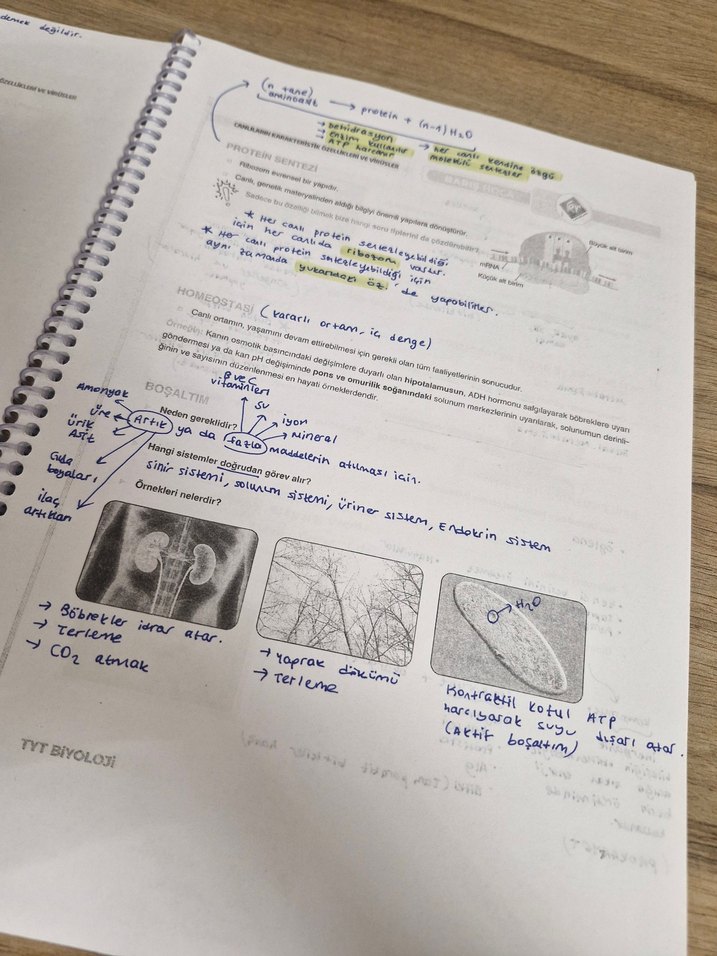 demek değildir.
ÖZELLİKLERİ VE VİRÜSLER
(n tane)
aminoasit → protein + (n-1) H₂O
→ Dehidrasyon
→ enzim kullanılır
ATP harcanır
→ her canlı kendine özgü
molekülü sentezler
CANLILARIN KARAKTERİSTİK ÖZELLİKLERİ VE VİRÜSLER
BARIŞ HOCA
PROTEİN SENTEZİ
Ribozom evrensel bir yapıdır.
Canlı, genetik materyalinden aldığı bilgiyi önemli yapılara dönüştürür.
Sadece bu özelliği bilmek bize hangi soru tiplerini de çözdürebilir?
* Her canlı protein sentezleyebildiği
için her canlıda ribozom vardır.
* Her canlı protein sentezleyebildiği için
aynı zamanda yukarıdaki öz. de yapabilirler.
Büyük alt birim
mRNA
Küçük alt birim
HOMEOSTASİ (kararlı ortam, iç denge)
Canlı ortamın, yaşamını devam ettirebilmesi için gerekli olan tüm faaliyetlerinin sonucudur.
Örneğin: Kanın osmotik basıncındaki değişimlere duyarlı olan hipotalamusun, ADH hormonu salgılayarak böbreklere uyarı
göndermesi ya da kan pH değişiminde pons ve omurilik soğanındaki solunum merkezlerinin uyarılarak, solunumun derinli-
ğinin ve sayısının düzenlenmesi en hayati örneklerdendir.
BOŞALTIM
B ve C
vitaminleri
su
iyon
mineral
Neden gereklidir?
Amonyak
üre
ürik
Asit
Gıda
boyaları
ilaç
artıkları
Artık ya da fazla maddelerin atılması için.
Hangi sistemler doğrudan görev alır?
sinir sistemi, solunum sistemi, üriner sistem, Endokrin sistem
Örnekleri nelerdir?
H₂O
→ Böbrekler idrar atar.
→ Terleme
→ CO₂ atmak
→ yaprak dökümü
→ Terleme
Kontraktil koful ATP
harcıyarak suyu dışarı atar.
(Aktif boşaltım)
TYT BİYOLOJİ